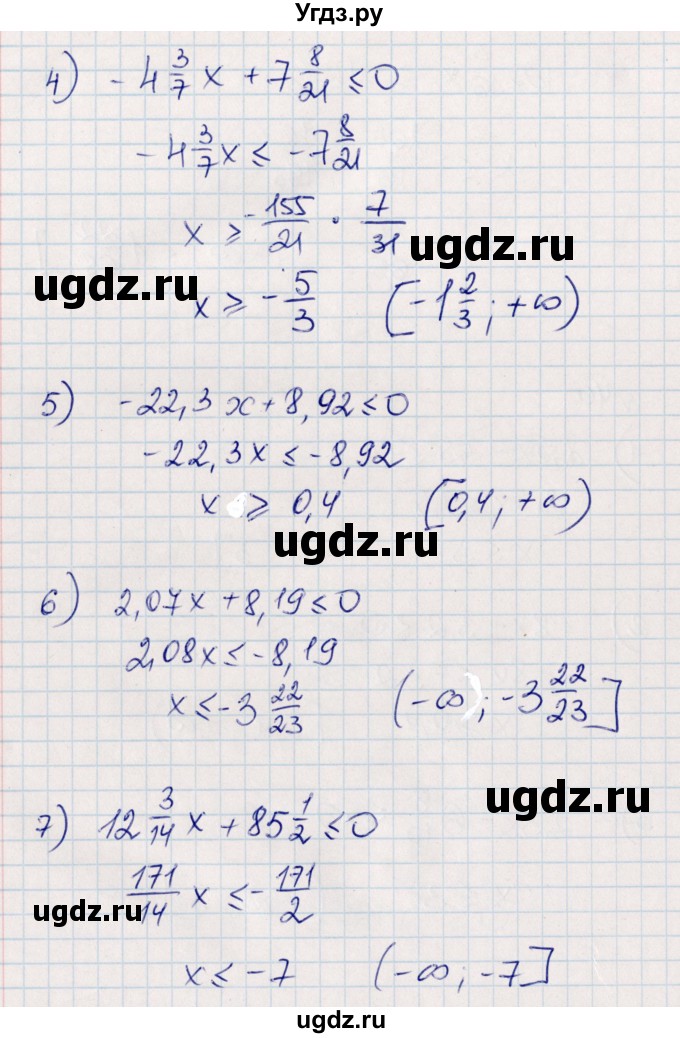 Угдз.ру
4) -4 3/7 x + 7 8/21 ≤ 0
-4 3/7 x ≤ -7 8/21
x ⩾ -155/21 · 7/31
ugdz.ru
ugdz.ru
x ⩾ -5/3 [-1 2/3; +∞)
5) -22,3x + 8,92 ≤ 0
-22,3x ≤ -8,92
x ⩾ 0,4 [0,4; +∞)
ugdz.ru
6) 2,07x + 8,19 ≤ 0
2,08x ≤ -8,19
x ≤ -3 22/23 (-∞; -3 22/23]
ugdz.ru
7) 12 3/14 x + 85 1/2 ≤ 0
171/14 x ≤ -171/2
ugdz.ru
x ≤ -7 (-∞; -7]
ugdz.ru